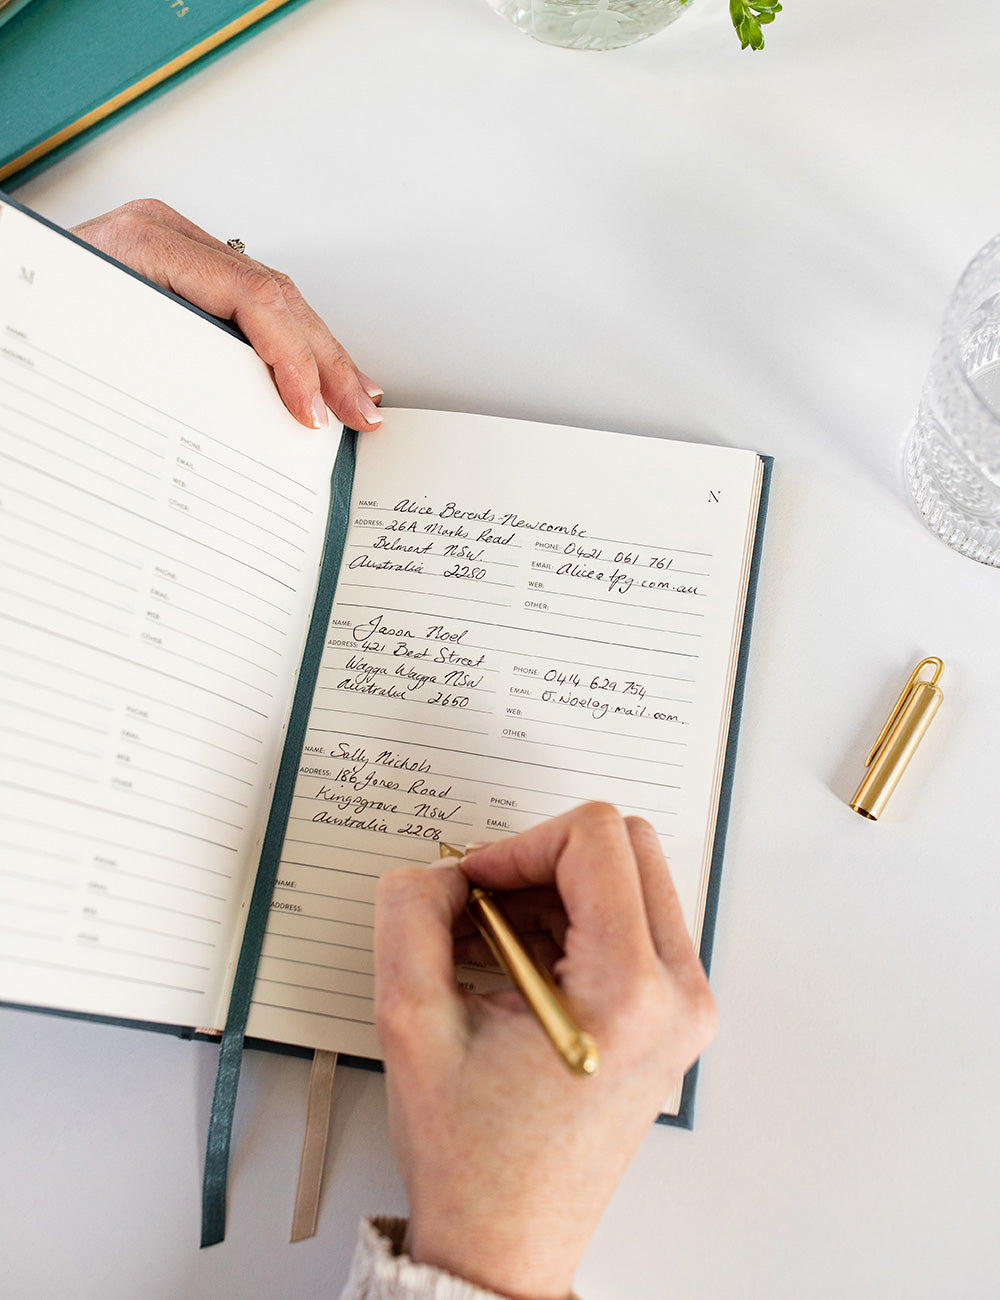 TS
M
NAME:
ADDRESS:
PHONE:
EMAIL:
WEB:
OTHER:
PHONE:
EMAIL:
WEB:
OTHER:
PHONE:
EMAIL:
WEB:
OTHER:
PHONE:
EMAIL:
WEB:
OTHER:
N
NAME: Alice Berents-Newcombe
ADDRESS: 26A Marks Road
Belmont NSW
Australia 2280
PHONE: 0421 061 761
EMAIL: Alice@tpg.com.au
WEB:
OTHER:
NAME: Jason Noel
ADDRESS: 421 Best Street
Wagga Wagga NSW
Australia 2650
PHONE: 0414 629 754
EMAIL: J.Noel@g.mail.com.
WEB:
OTHER:
NAME: Sally Nichols
ADDRESS: 186 Jones Road
Kingsgrove NSW
Australia 2208
PHONE:
EMAIL:
NAME:
ADDRESS:
EMAIL:
WEB: